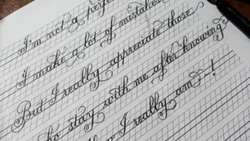 I'm not a perf
I make a lot of mistakes
But I really appreciate those
ho stay with me after knowing
I really am ~!